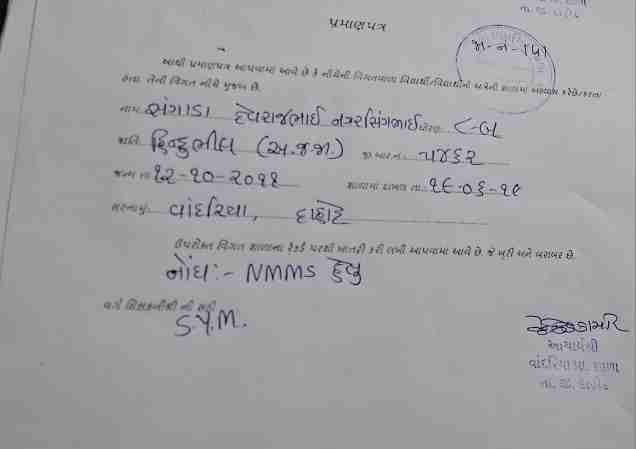 તા.જી.દાહોદ
પ્રમાણપત્ર
જા-ન-(૫)
આથી પ્રમાણપત્ર આપવામાં આવે છે કે નીચેની વિગતવાળા વિદ્યાર્થી/વિદ્યાર્થીની અત્રેની શાળામાં અભ્યાસ કરેછે/કરતા
હતા. તેની વિગત નીચે મુજબ છે.
નામ: સંગાડા દેવરાજભાઈ નગરસિંગભાઈ ધોરણ: ૮-બ
જાતિ: હિન્દુભીલ (અ.જ.જા.) જી.આર.નં.: ૫૪૬૨
જન્મ તા: ૧૨-૧૦-૨૦૧૧ શાળામાં દાખલ તા.: ૧૯-૦૬-૧૯
સરનામું: વાંદરિયા, દાહોદ
ઉપરોક્ત વિગત શાળાના રેકર્ડ પરથી ખાતરી કરી લખી આપવામાં આવે છે. જે ખરી અને બરાબર છે.
નોંધ:- NMMS હેતુ
વર્ગ શિક્ષકનીશ્રી ની સહી
S.Y.M.
આચાર્યશ્રી
વાંદરિયા પ્રા. શાળા
તા. જી. દાહોદ